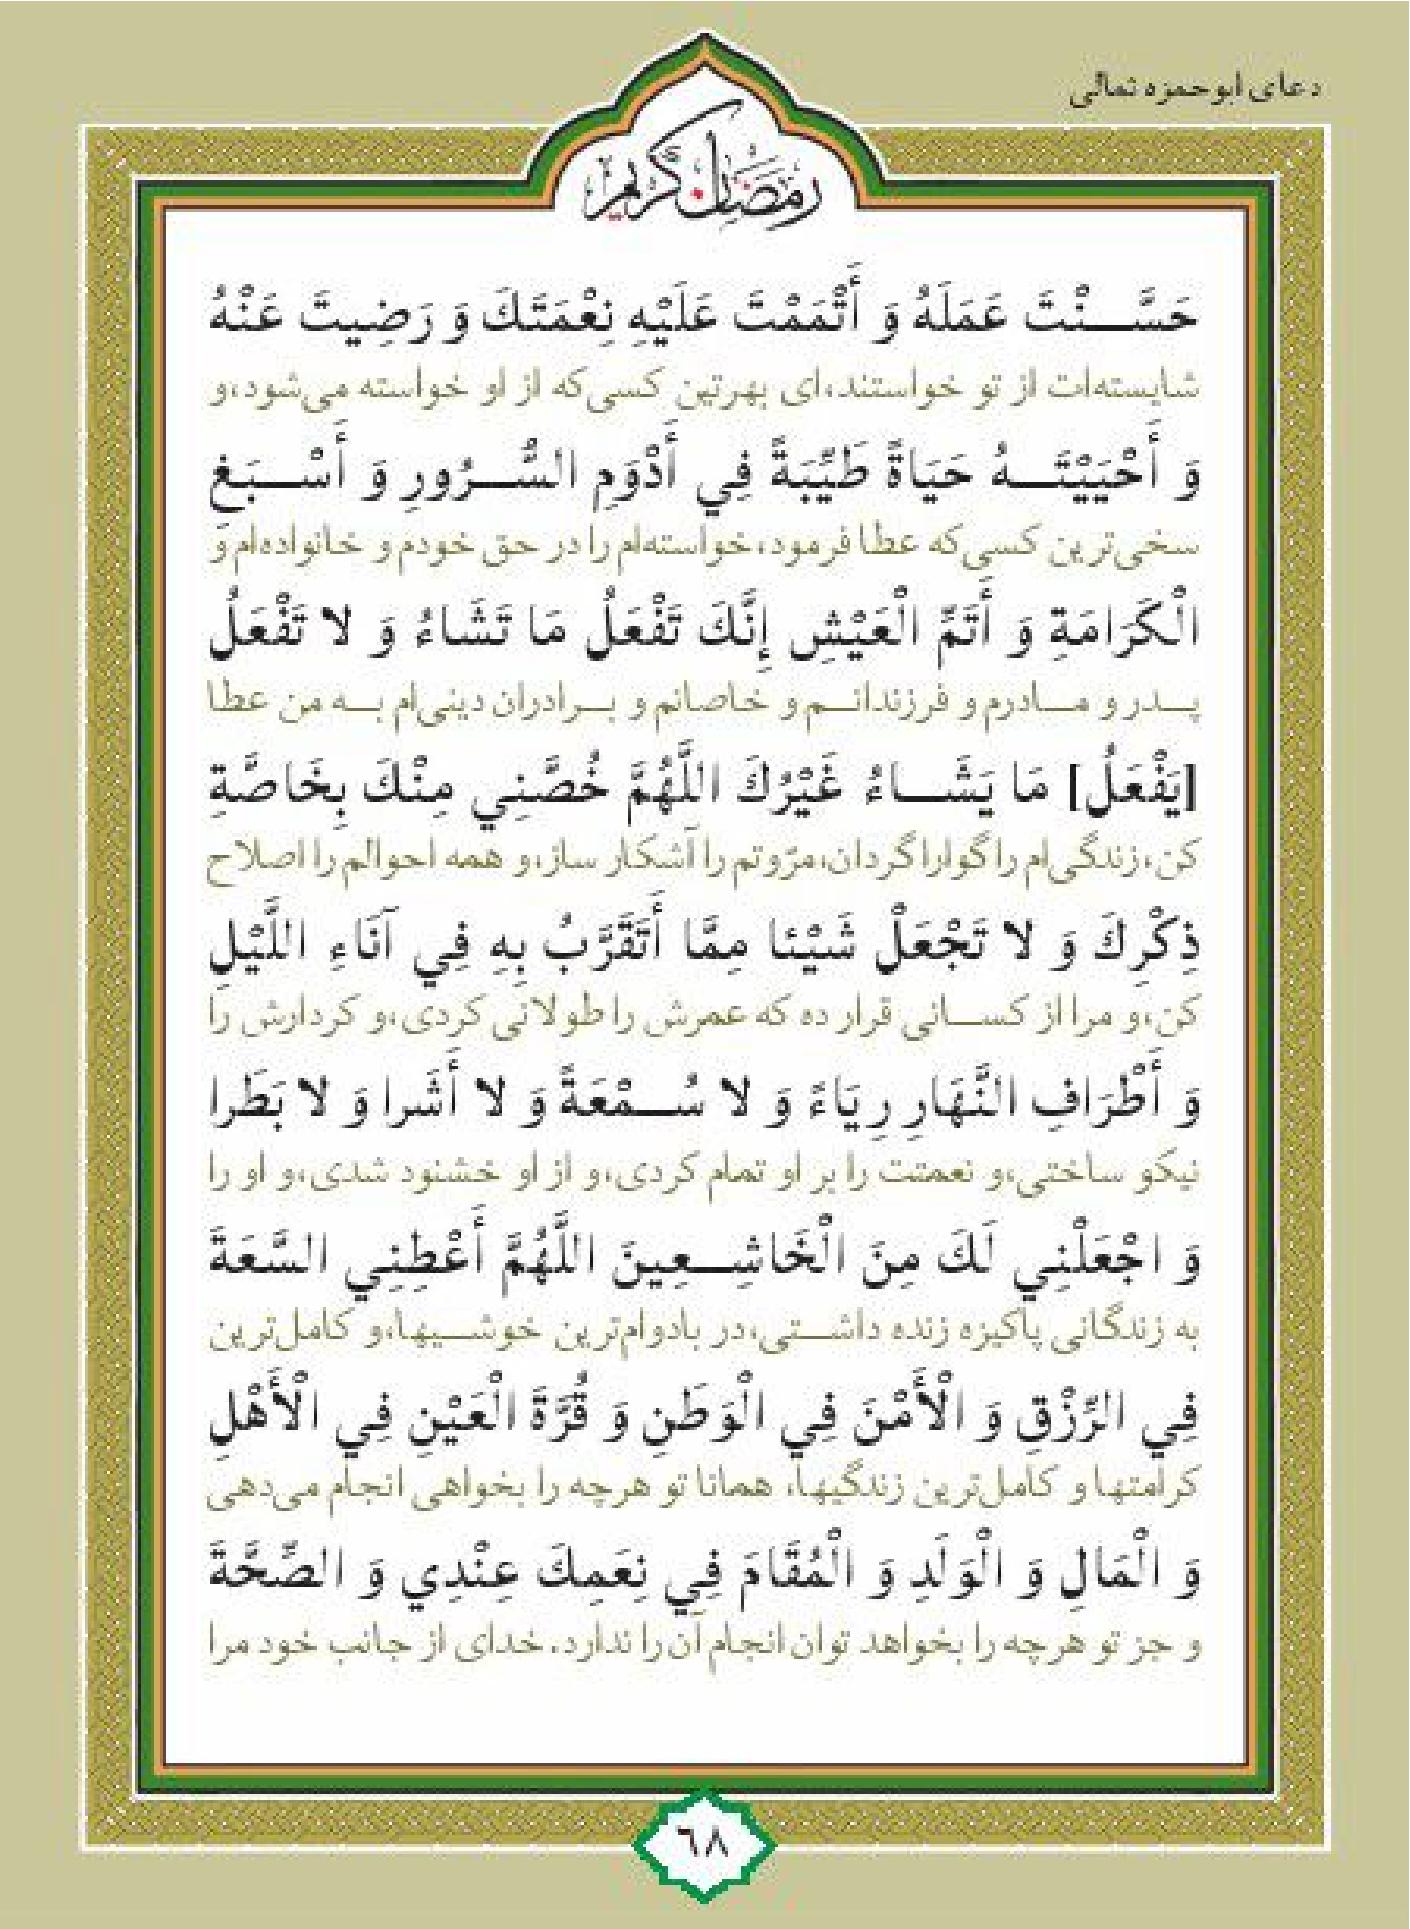 دعای ابوحمزه ثمالی
رمضان کریم
حَسَّنْتَ عَمَلَهُ وَ أَتْمَمْتَ عَلَيْهِ نِعْمَتَكَ وَ رَضِيتَ عَنْهُ
شایسته‌ات از تو خواستند،ای بهرتین کسی‌که از او خواسته می‌شود،و
وَ أَحْيَيْتَهُ حَيَاةً طَيِّبَةً فِي أَدْوَمِ السُّرُورِ وَ أَسْبَغِ
سخی‌ترین کسی‌که عطا فرمود،خواسته‌ام را در حق خودم و خانواده‌ام و
الْكَرَامَةِ وَ أَتَمِّ الْعَيْشِ إِنَّكَ تَفْعَلُ مَا تَشَاءُ وَ لا تَفْعَلُ
پدر و مادرم و فرزندانم و خاصانم و برادران دینی‌ام به من عطا
[يَفْعَلُ] مَا يَشَاءُ غَيْرُكَ اللَّهُمَّ خُصَّنِي مِنْكَ بِخَاصَّةِ
کن،زندگی‌ام را گوارا گردان،مرّوتم را آشکار ساز،و همه احوالم را اصلاح
ذِكْرِكَ وَ لا تَجْعَلْ شَيْئا مِمَّا أَتَقَرَّبُ بِهِ فِي آنَاءِ اللَّيْلِ
کن،و مرا از کسانی قرار ده که عمرش را طولانی کردی،و کردارش را
وَ أَطْرَافِ النَّهَارِ رِيَاءً وَ لا سُمْعَةً وَ لا أَشَرا وَ لا بَطَرا
نیکو ساختی،و نعمتت را بر او تمام کردی،و از او خشنود شدی،و او را
وَ اجْعَلْنِي لَكَ مِنَ الْخَاشِعِينَ اللَّهُمَّ أَعْطِنِي السَّعَةَ
به زندگانی پاکیزه زنده داشتی،در بادوام‌ترین خوشیها،و کامل‌ترین
فِي الرِّزْقِ وَ الْأَمْنَ فِي الْوَطَنِ وَ قُرَّةَ الْعَيْنِ فِي الْأَهْلِ
کرامتها و کامل‌ترین زندگیها، همانا تو هرچه را بخواهی انجام می‌دهی
وَ الْمَالِ وَ الْوَلَدِ وَ الْمُقَامَ فِي نِعَمِكَ عِنْدِي وَ الصِّحَّةَ
و جز تو هرچه را بخواهد توان انجام آن را ندارد. خدای از جانب خود مرا
٦٨